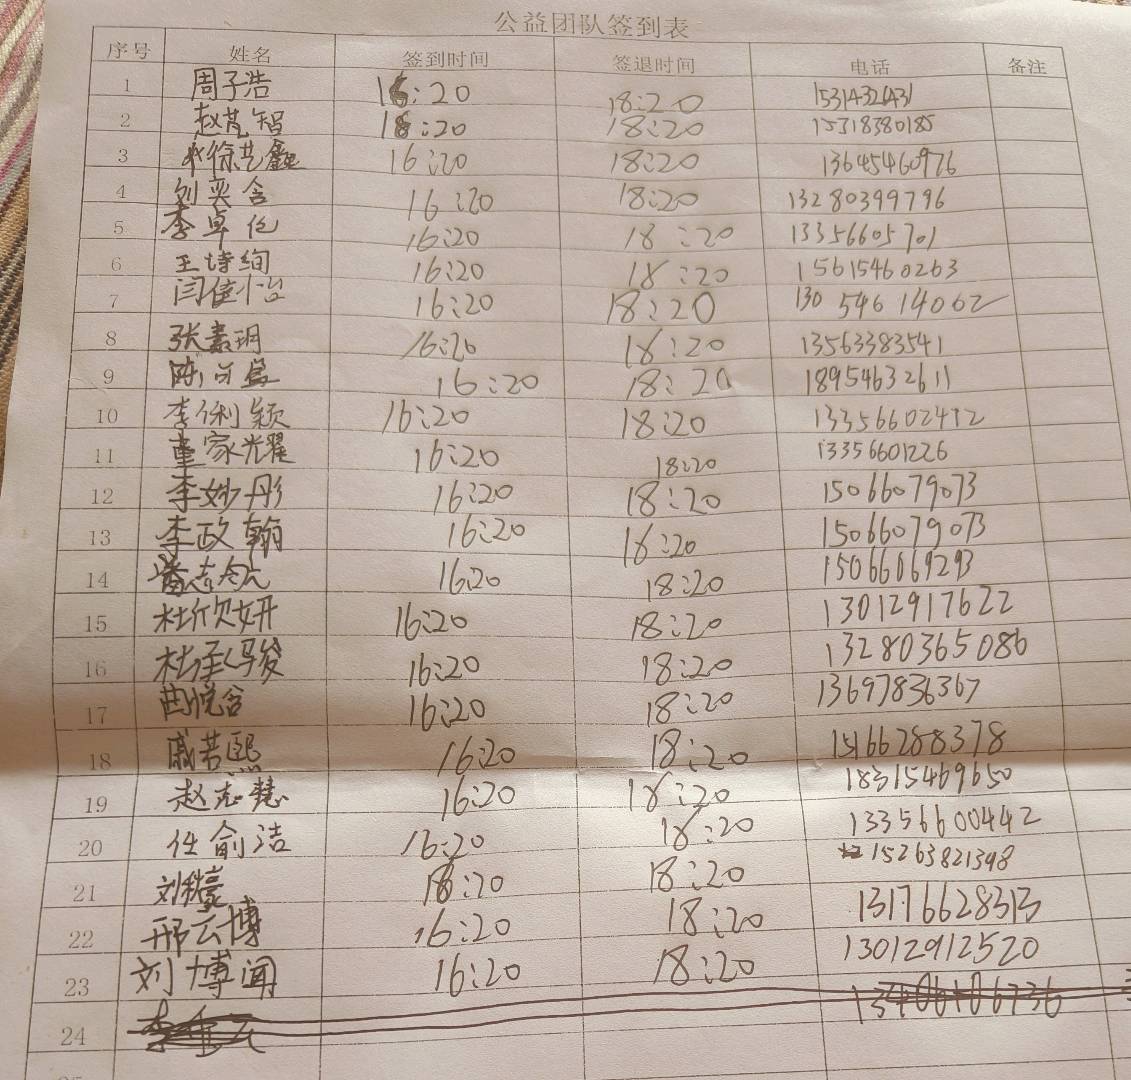 公益团队签到表
序号 姓名 签到时间 签退时间 电话 备注
1 周子浩 16:20 18:20
2 赵芃智 16:20 18:20 15318380185
3 徐艺鑫 16:20 18:20 13645460976
4 刘奕含 16:20 18:20 13280399796
5 李卓伦 16:20 18:20 13356605701
6 王诗绚 16:20 18:20 15615460263
7 闫佳怡 16:20 18:20 13054614062
8 张嘉玥 16:20 18:20 13563383541
9 16:20 18:20 18954632611
10 李俐颖 16:20 18:20 13356602412
11 董家光耀 16:20 18:20 13356601226
12 李妙彤 16:20 18:20 15066079073
13 李政翰 16:20 18:20 15066079073
14 志航 16:20 18:20 15066069293
15 杜欣妍 16:20 18:20 13012917622
16 杜承骏 16:20 18:20 13280365086
17 曲悦含 16:20 18:20 13697836367
18 戚若熙 16:20 18:20 15166288378
19 赵志慧 16:20 18:20 18315469650
20 任俞洁 16:20 18:20 13356600442
21 刘轶豪 16:20 18:20 15263821398
22 邢云博 16:20 18:20 13176628313
23 刘博闻 16:20 18:20 13012912520
24